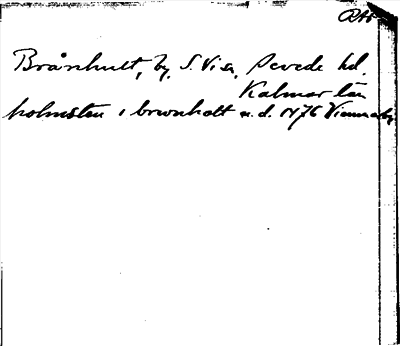 RAp
Brånhult, by, S. Vi sn, Sevede hd.
Kalmar län
holmsten i brwnholt u. d. 1476 Vimmerby